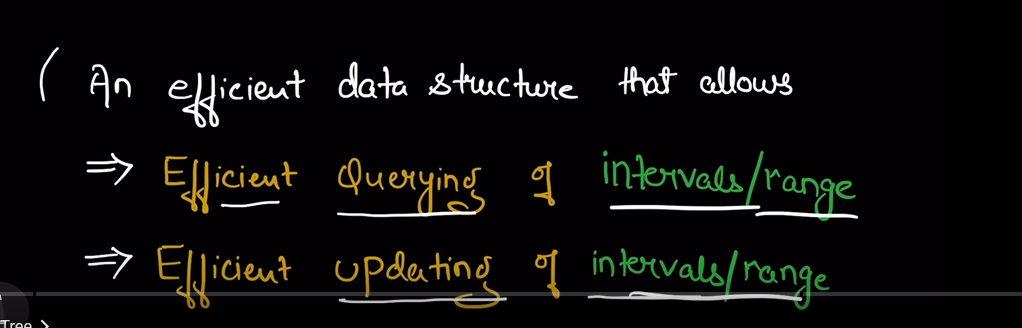 ( An efficient data structure that allows
⇒ Efficient Querying of intervals/range
⇒ Efficient updating of intervals/range
Tree >